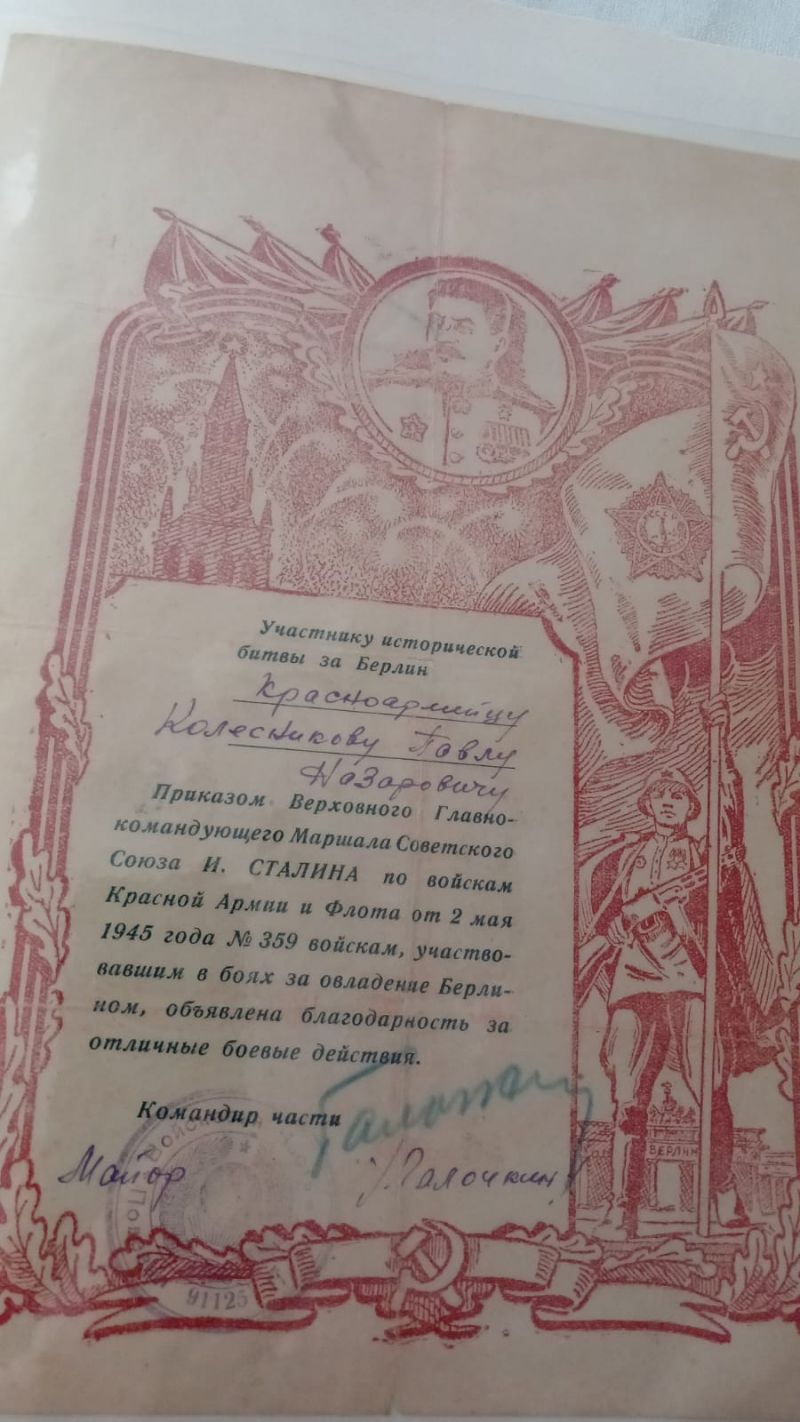 СССР
Участнику исторической
битвы за Берлин
Красноармейцу
Колесникову Павлу
Назаровичу
Приказом Верховного Главно-
командующего Маршала Советского
Союза И. СТАЛИНА по войскам
Красной Армии и Флота от 2 мая
1945 года № 359 войскам, участво-
вавшим в боях за овладение Берли-
ном, объявлена благодарность за
отличные боевые действия.
Командир части
Майор
Галочкин
БЕРЛИН
91125